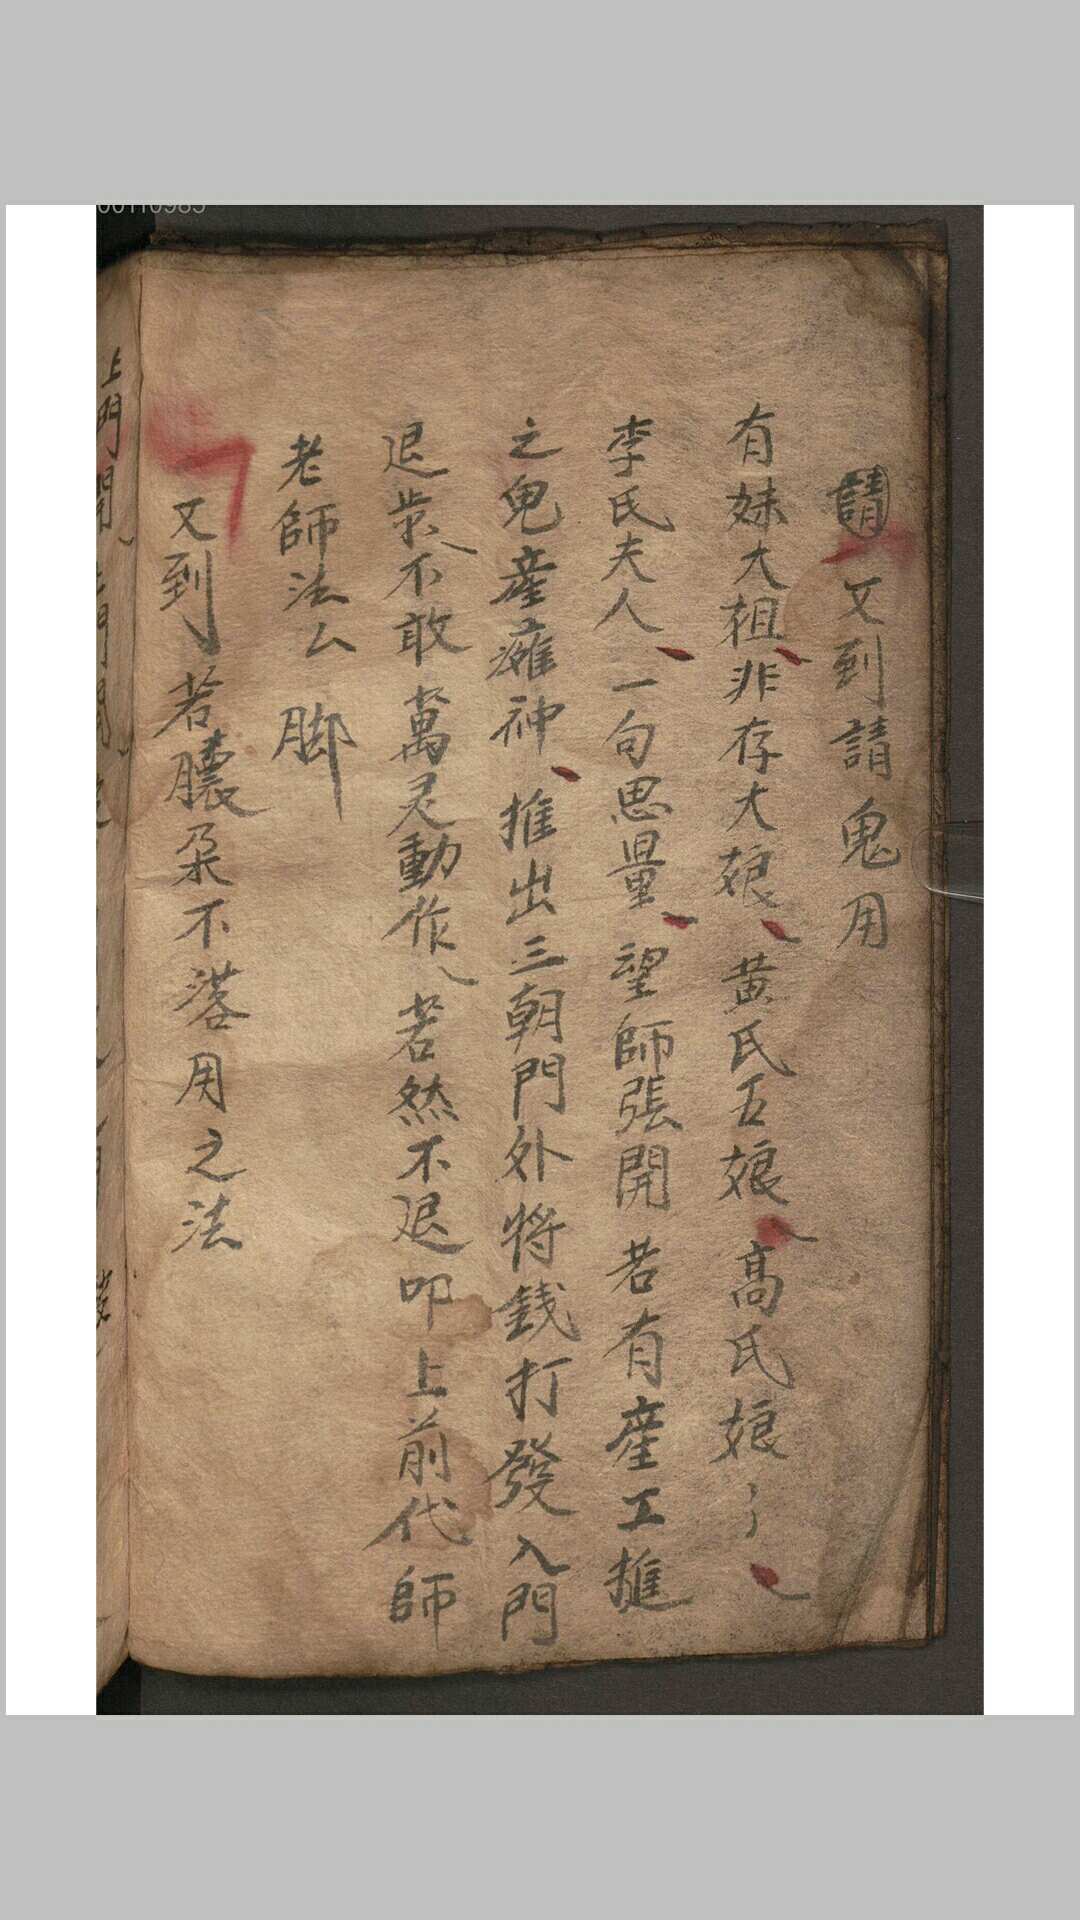 請又到請鬼用
有妹大祖非存大娘黄氏五娘高氏娘〻
李氏夫人一句思量望師張開若有産工推
之鬼産瘫神推出三朝門外将銭打發入門
退歩不敢萬灵動作若然不退叩上前代師
老師法厶脚
又到若膿朶不落用之法